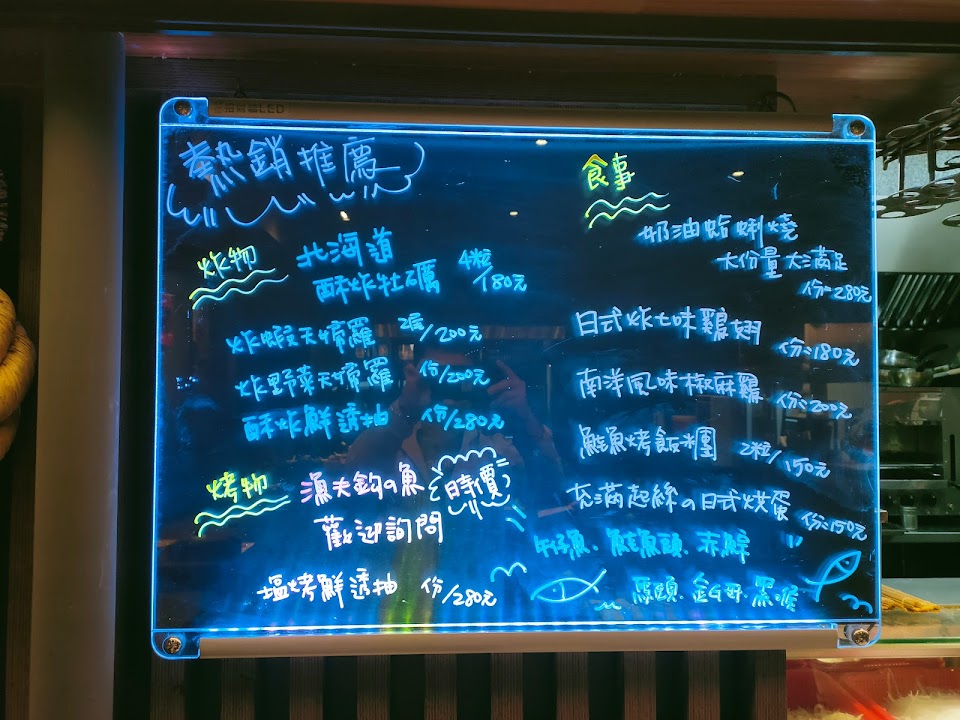 熱銷推薦
炸物
北海道
酥炸牡礪 4粒/180元
炸蝦天婦羅 2尾/200元
炸野菜天婦羅 份/200元
酥炸鮮透抽 份/280元
烤物
漁夫釣の魚 時價
歡迎詢問
塩烤鮮透抽 份/280元
食事
奶油蛤蜊燒
大份量大滿足
份=280元
日式炸七味鷄翅 份=180元
南洋風味椒麻鷄 份=200元
鮭魚烤飯糰 2粒/150元
充滿起絲の日式烘蛋 份=150元
午仔魚．鮭魚頭．赤鯮
馬頭．黑喉